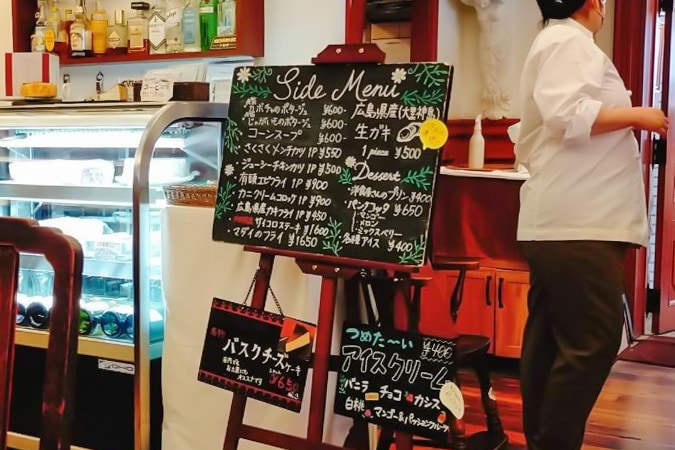 Side Menu
カボチャのポタージュ ¥600-
じゃがいものポタージュ ¥600-
コーンスープ ¥600
さくさくメンチカツ 1P ¥550
ジューシーチキンカツ 1P ¥500
有頭エビフライ 1P ¥900
カニクリームコロッケ 1P ¥900
広島県産カキフライ 1P ¥450
サイコロステーキ ¥1600
マダイのフライ ¥1650
広島県産(大黒神島)
生ガキ
1 piece ¥500
Dessert
洋食屋さんのプリン ¥400
パンナコッタ ¥650
マンゴー
メロン
ミックスベリー
各種アイス ¥400
バスクチーズケーキ
¥650
つめた〜い ¥400
アイスクリーム
バニラ チョコ カシス
白桃 マンゴー&パッションフルーツ